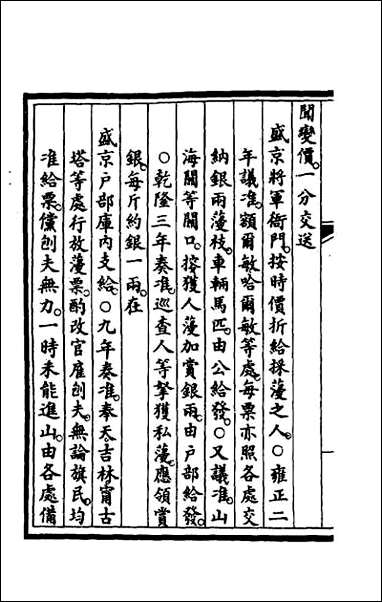 聞變價。一分交送
盛京將軍衙門。按時價折給採蓡之人。○雍正二
年議准。額爾敏哈爾敏等處。每票亦照各處交
納銀兩蓡枝。車輛馬匹。由公給發。○又議准。山
海關等關口。搜獲人蓡加賞銀兩。由戶部給發。
○乾隆三年奏准。巡查人等拏獲私蓡。應領賞
銀。每斤約銀一兩。在
盛京戶部庫內支給。○九年奏准。奉天吉林甯古
塔等處行放蓡票。酌改官雇刨夫。無論旗民。均
准給票。儻刨夫無力。一時未能進山。由各處備